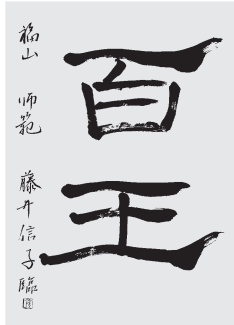 百王
福山 师範 藤井信子臨